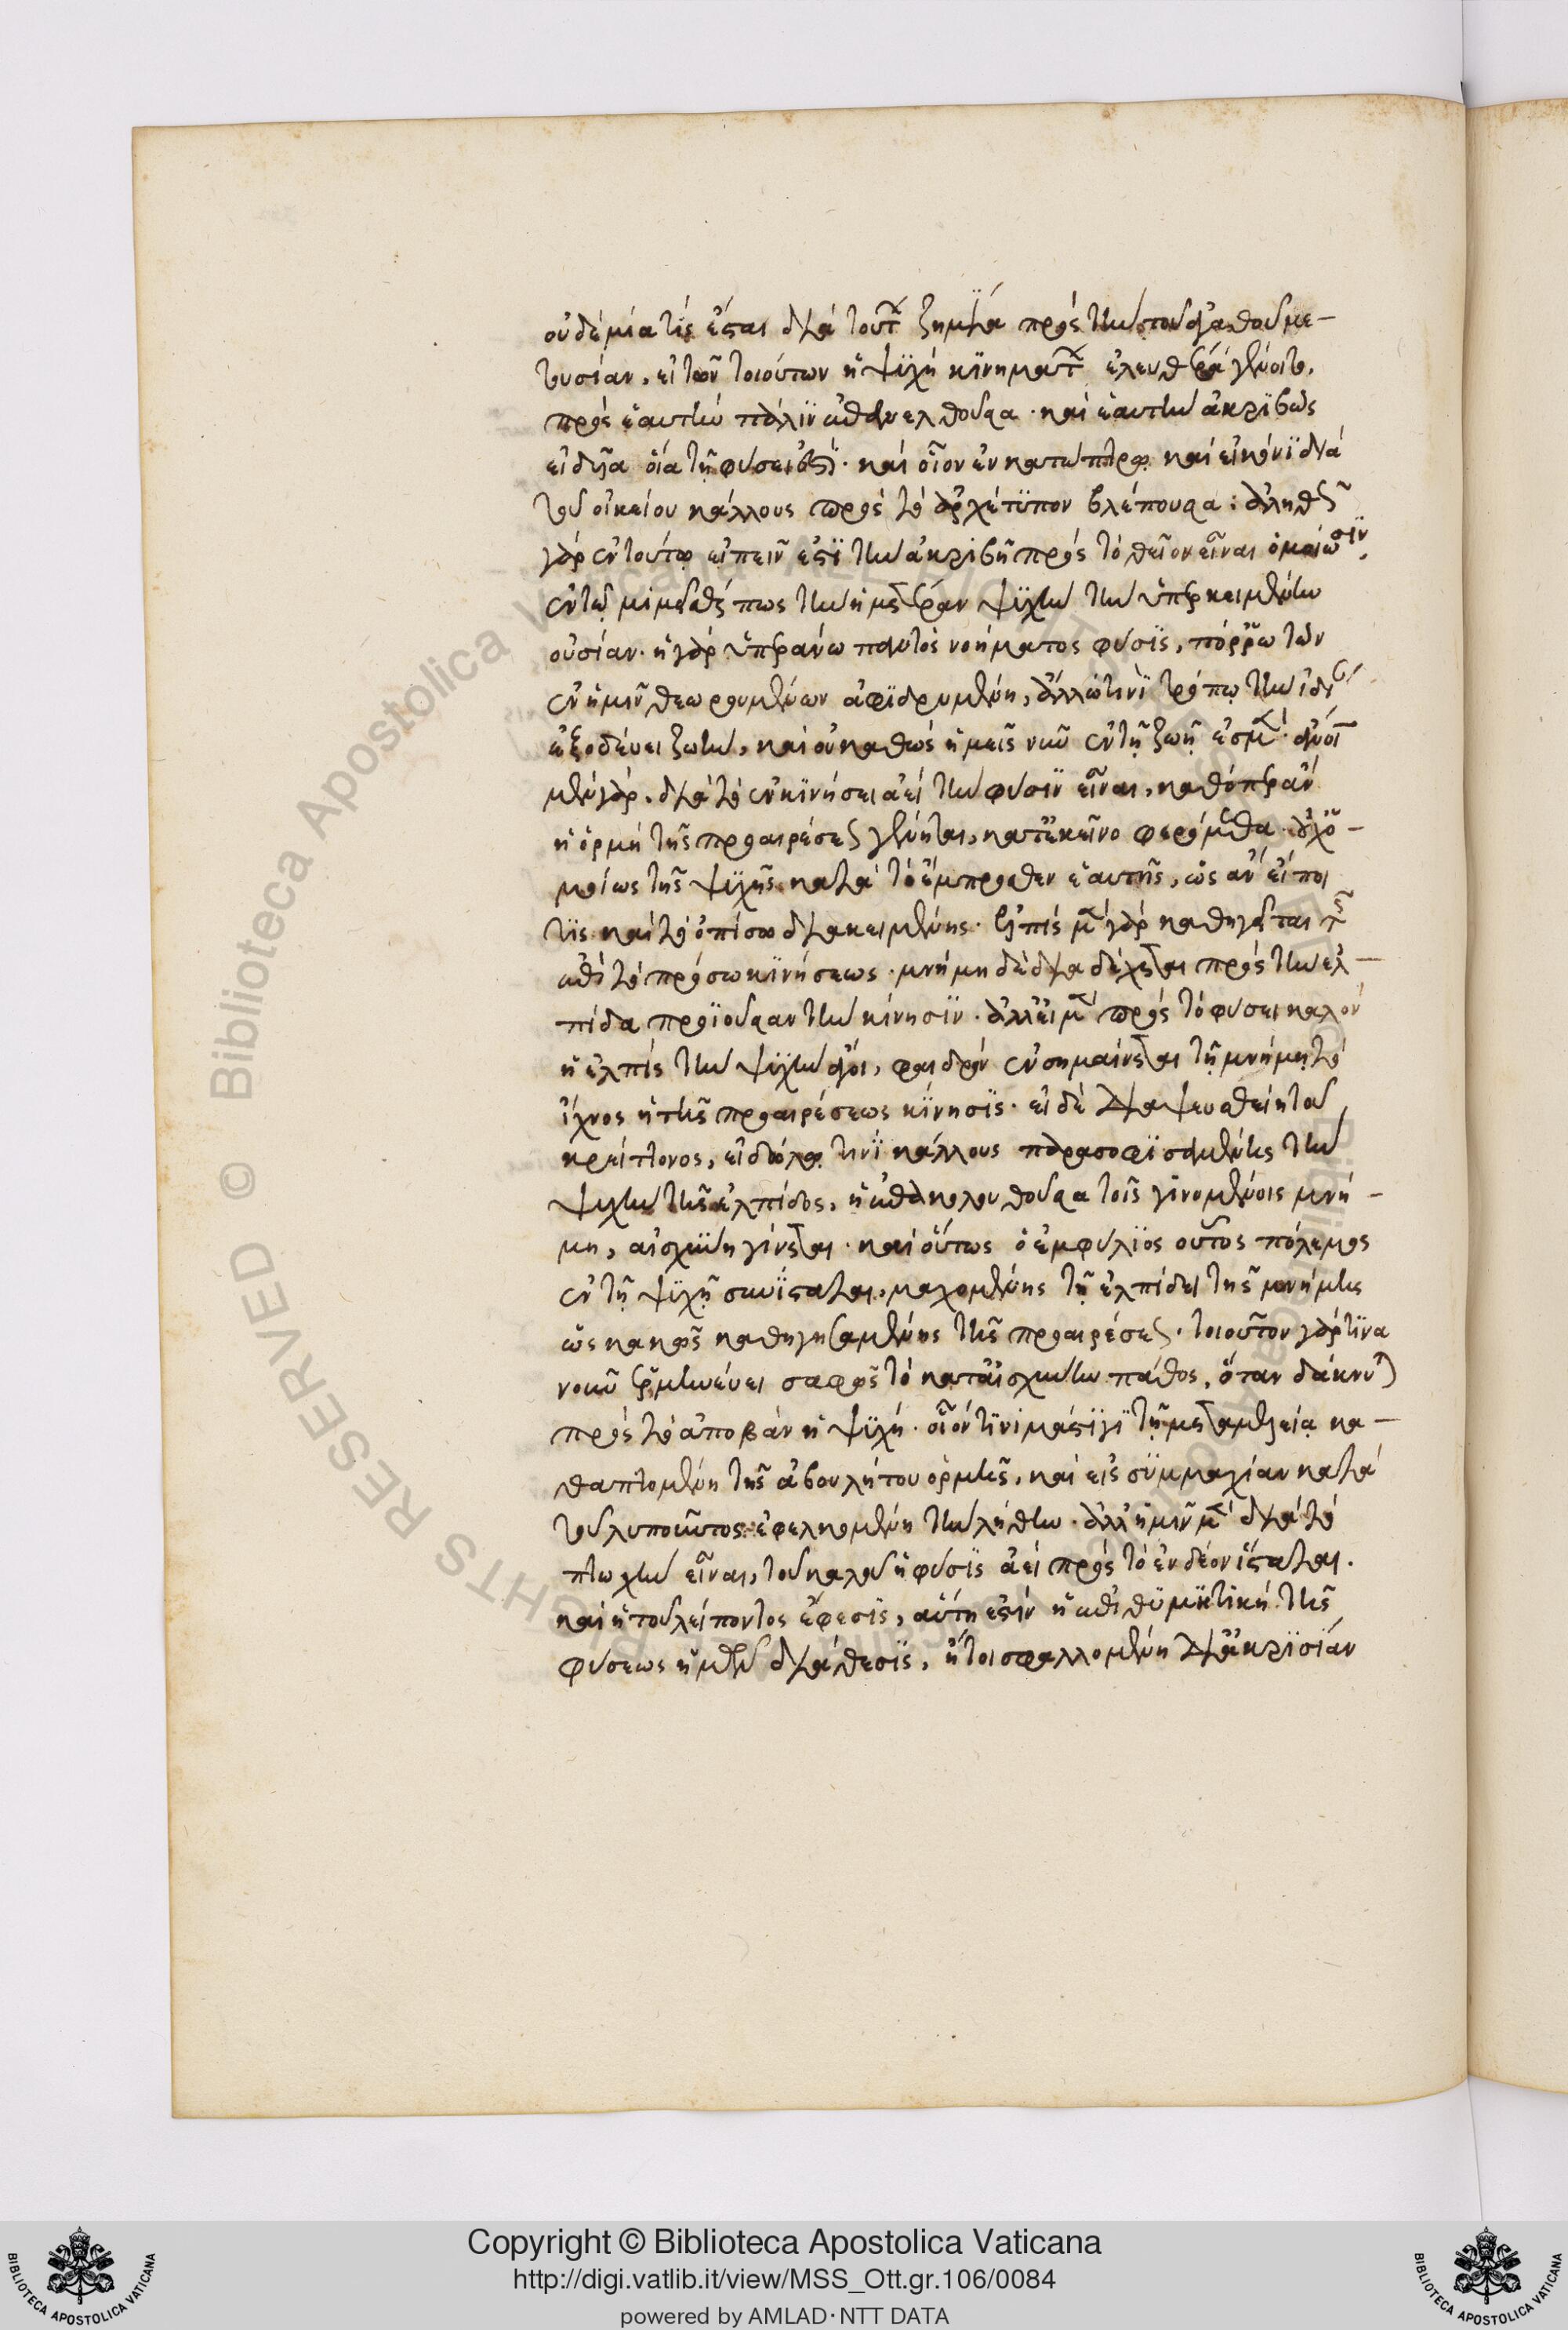 οὐδεμία τίς ἔσται διὰ τούτων ζημία πρὸς τὴν τοῦ ἀγαθοῦ με-
τουσίαν. εἰ τῶν τοιούτων ἡ ψυχὴ κινημάτων ἐλευθέρα γένοιτο,
πρὸς ἑαυτὴν πάλιν ἐπανελθοῦσα· καὶ ἑαυτὴν ἀκριβῶς
εἰδυῖα οἵα τῇ φύσει ἐστί· καὶ οἷον ἐν κατόπτρῳ καὶ εἰκόνι διὰ
τοῦ οἰκείου κάλλους πρὸς τὸ ἀρχέτυπον βλέπουσα: ἀληθῶς
γὰρ ἐν τούτῳ εἰπεῖν ἐστὶ τὴν ἀκριβῆ πρὸς τὸ θεῖον εἶναι ὁμοίωσιν,
ἐν τῷ μιμεῖσθαί πως τὴν ἡμετέραν ψυχὴν τὴν ὑπερκειμένην
οὐσίαν. ἡ γὰρ ὑπεράνω παντὸς νοήματος φύσις, πόρρω τῶν
ἐν ἡμῖν θεωρουμένων ἀφιδρυμένη, ἄλλῳ τινὶ τρόπῳ τὴν ἰδίαν
ἐξοδεύει ζωὴν, καὶ οὐ καθὼς ἡμεῖς νῦν ἐν τῇ ζωῇ ἐσμέν· ἄνοι
μὲν γὰρ, διὰ τὸ ἐν κινήσει ἀεὶ τὴν φύσιν εἶναι, καθ' ὅπερ ἂν
ἡ ὁρμὴ τῆς προαιρέσεως γένηται, κατ' ἐκεῖνο φερόμεθα· οὐχ ὁ-
μοίως τῆς ψυχῆς κατὰ τὸ ἔμπροσθεν ἑαυτῆς, ὡς ἂν εἴποι
τις καὶ τὸ ὀπίσω διακειμένης. ἐλπὶς μὲν γὰρ καθηγεῖται τῆς
ἐπὶ τὸ πρόσω κινήσεως· μνήμη δὲ διαδέχεται πρὸς τὴν ἐλ-
πίδα προϊοῦσαν τὴν κίνησιν· ἀλλ' εἰ μὲν πρὸς τὸ φύσει καλὸν
ἡ ἐλπὶς τὴν ψυχὴν ἄγοι, φαιδρὸν ἐνσημαίνεται τῇ μνήμῃ τὸ
ἴχνος ἡ τῆς προαιρέσεως κίνησις. εἰ δὲ διαψευσθείη τοῦ
κρείττονος, εἰδώλῳ τινὶ κάλλους παρασοφισαμένης τὴν
ψυχὴν τῆς ἐλπίδος, ἡ ἐπακολουθοῦσα τοῖς γινομένοις μνή-
μη, αἰσχύνη γίνεται· καὶ οὕτως ὁ ἐμφύλιος οὗτος πόλεμος
ἐν τῇ ψυχῇ συνίσταται, μαχομένης τῇ ἐλπίδει τῆς μνήμης
ὡς κακῶς καθηγησαμένης τῆς προαιρέσεως. τοιοῦτον γάρ τινα
νοῦν ἑρμηνεύει σαφῶς τὸ κατ' αἰσχύνην πάθος, ὅταν δάκνηται
πρὸς τὸ ἀποβὰν ἡ ψυχή· οἷόν τινι μάστιγι τῇ μεταμελείᾳ κα-
θαπτομένη τῆς ἀβουλήτου ὁρμῆς, καὶ εἰς συμμαχίαν κατὰ
τοῦ λυποῦντος ἐφελκομένη τὴν λήθην. ἀλλ' ἡμῖν μὲν διὰ τὸ
πτωχὴν εἶναι, τοῦ καλοῦ ἡ φύσις ἀεὶ πρὸς τὸ ἐνδέον ἵσταται.
καὶ ἡ τοῦ λείποντος ἔφεσις, αὕτη ἐστὶν ἡ ἐπιθυμητικὴ τῆς
φύσεως ἡμῶν διάθεσις, ἤτοι σφαλλομένη δι' ἀκρισίαν
Copyright © Biblioteca Apostolica Vaticana
http://digi.vatlib.it/view/MSS_Ott.gr.106/0084
powered by AMLAD·NTT DATA